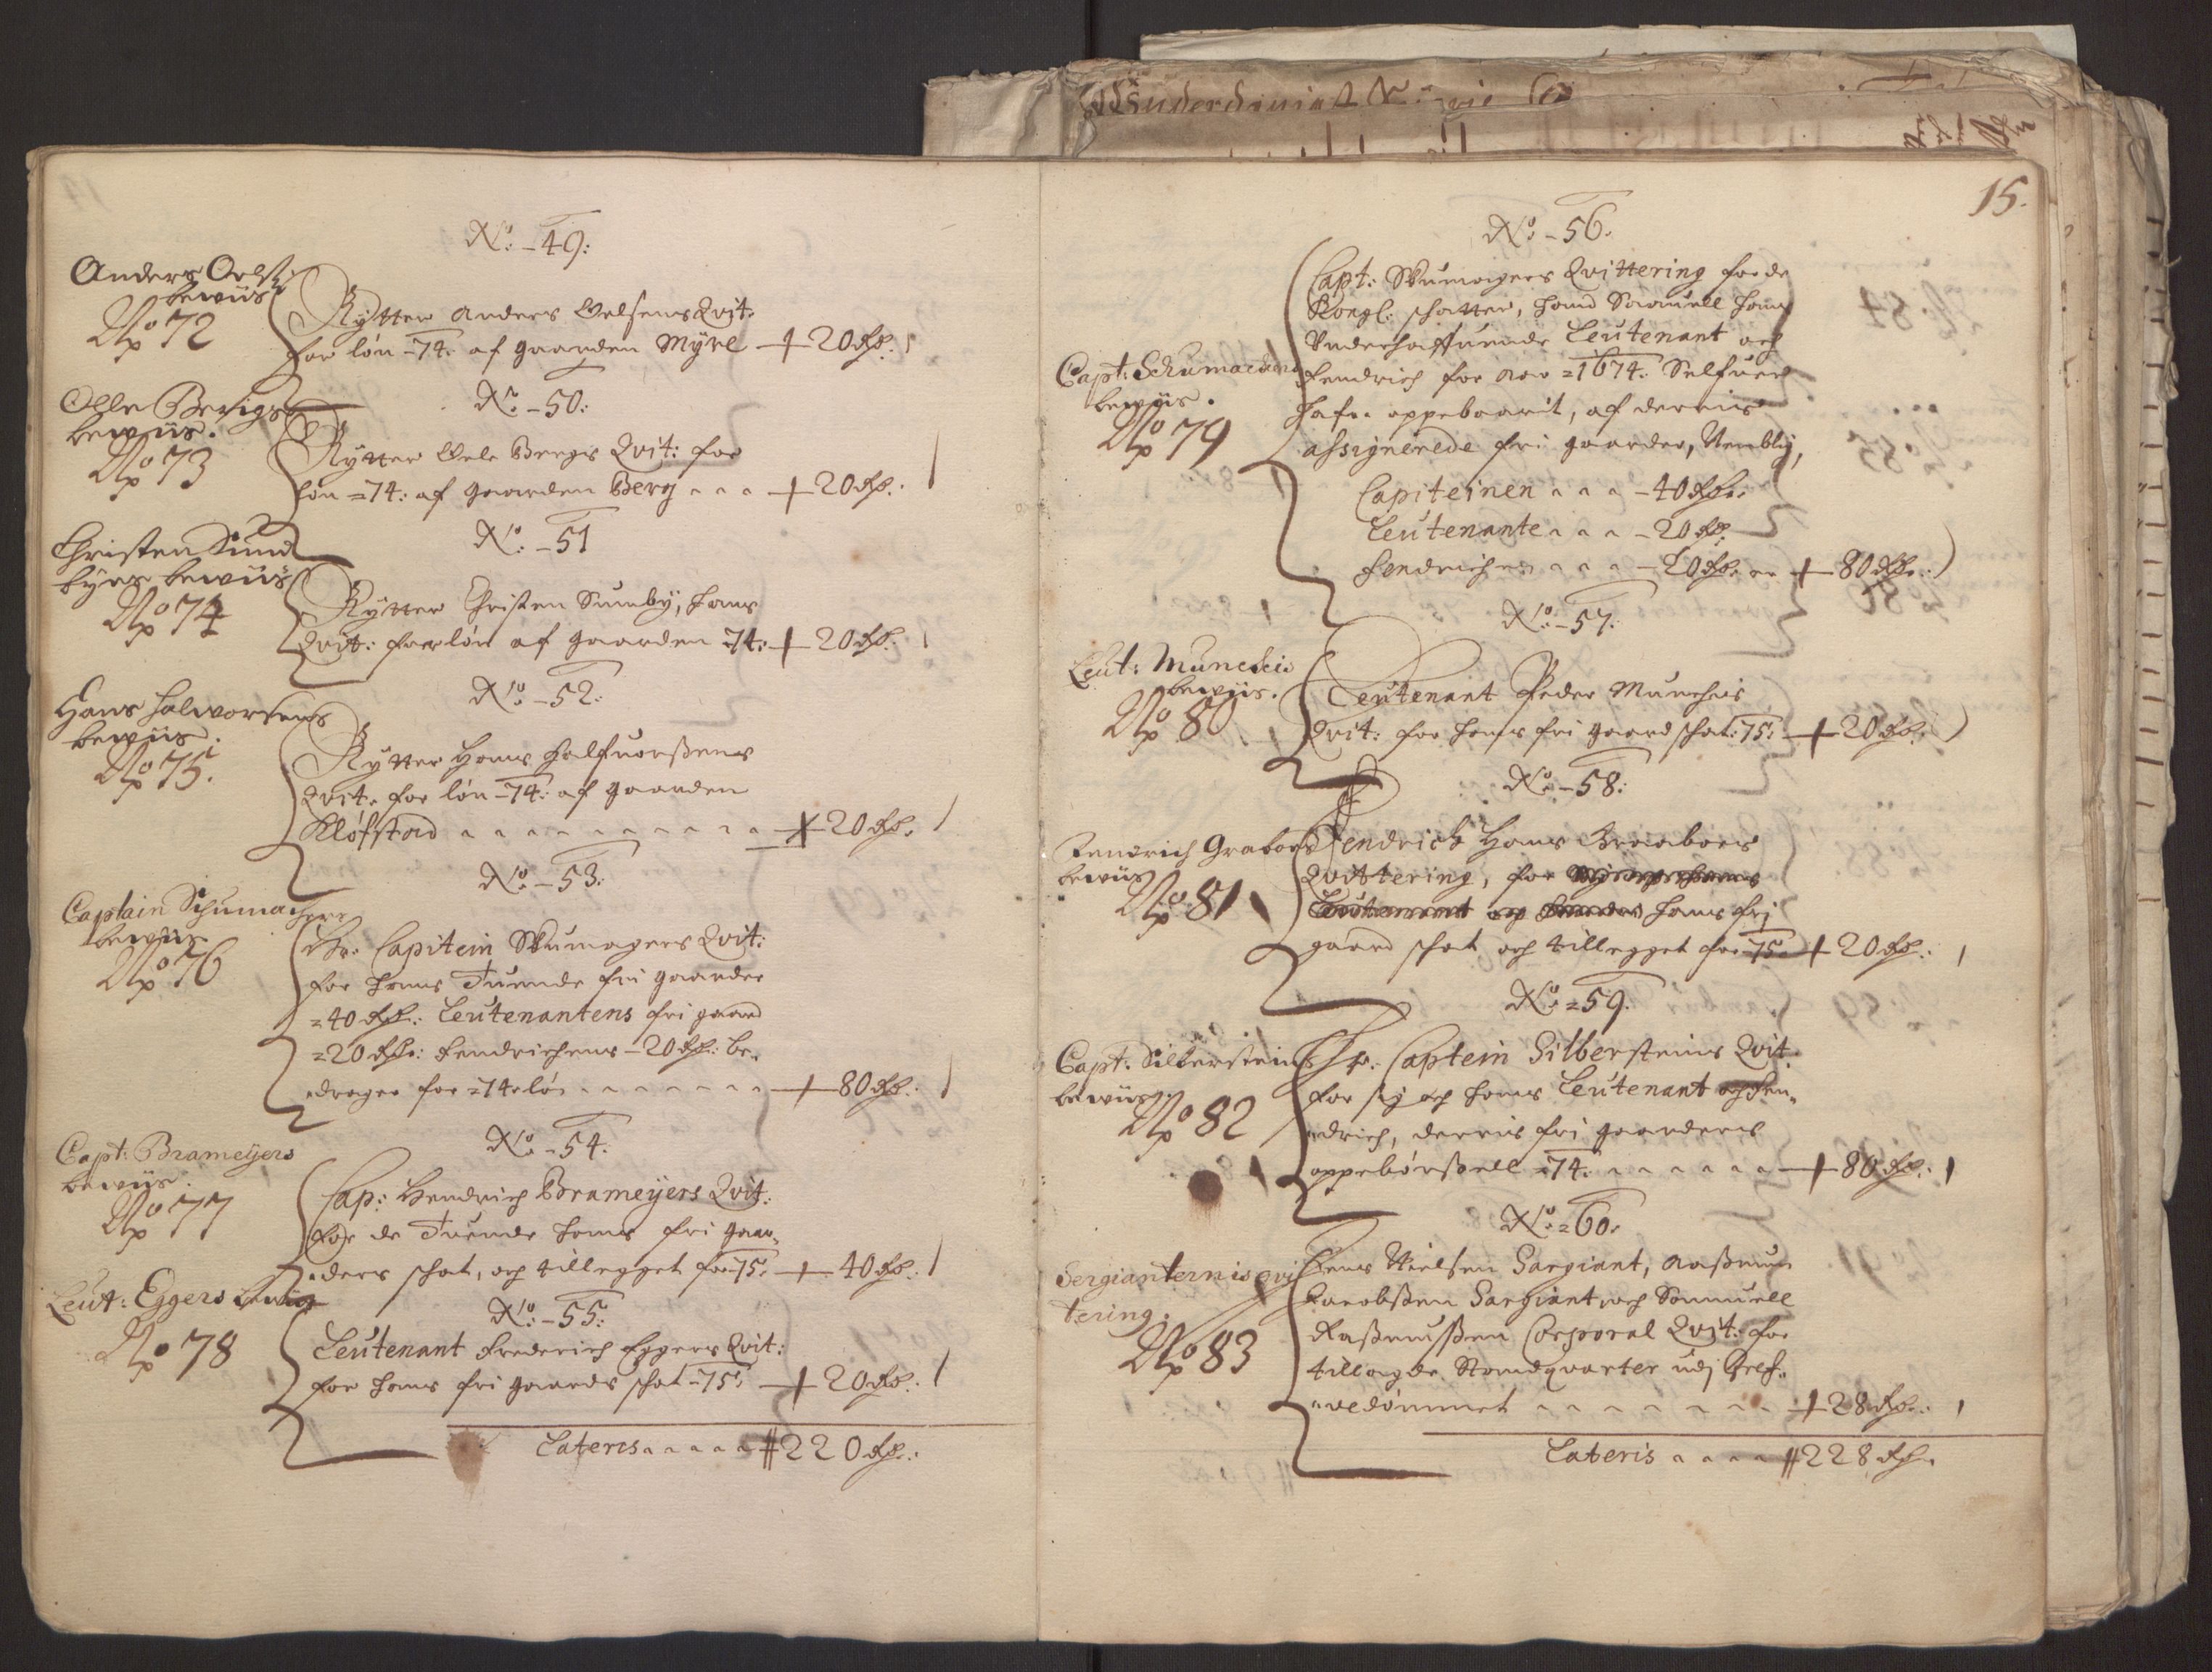 No: -49:
Anders Oels:
bewiis
No 72
Rytter Anders Oelsens Qvit:
for løn -74: af gaarden Myre + 20 Rdr:
No: -50:
Olle Bergs
bewiis.
No 73
Rytter Oele Bergs Qvit: for
løn =74: af gaarden Berg + 20 Rdr:
No: -51
Christen Sund
byes bewiis
No 74
Rytter Christen Sunby, hans
Qvit: for løn af gaarden -74: + 20 Rdr:
No: -52:
Hans Halvorsens
bewiis.
No 75.
Rytter Hans Halfuorßens
Qvit. for løn -74: af gaarden
Kløfstad + 20 Rdr.
No: -53:
Captain Schumachers
bewiis
No 76
Hr: Capitein Skumagers Qvit:
for hans Tuende fri gaarder
=40 Rdr: Leutenantens fri gaard
=20 Rdr: Fendrichens -20 Rdr: be-
drager for =74 løn + 80 Rdr:
No: -54:
Capt: Brameÿers
bewiis.
No 77
Cap: Hendrich Brameÿers Qvit:
for de Tuende hans fri gaar-
ders schat, och tillegget for 75. + 40 Rdr:
No: -55:
Leut: Eggers bewiis
No 78
Leutenant Frederich Eggers Qvit:
for hans fri gaards schat -75: + 20 Rdr:
Lateris 220 Rdr:
15.
No: -56.
Capt: Schumachers
bewiis.
No 79
Capt: Skumagers Qvittering for de
Kongl: schatter, hand Sampt hans
Underhaffuende Leutenant och
Fendrich for Aar =1674. Selfuer
hafr. oppebaarit, af derris
assignerede fri gaarder, Nemblig,
Capiteinen -40 Rdr:
Leutenante -20 Rdr.
Fendrichen -20 Rdr. + 80 Rdr:
No: -57:
Leut: Munchis
bewiis.
No 80
Leutenant Peder Munchis
Qvit: for hans fri gaard schat: 75: + 20 Rdr:
No: -58:
Fendrich Graboes
bewiis
No 81
Fendrich Hans Graaboes
Qvittering, for
Leutenant og hans fri
gaard schat och tillegget for 75. + 20 Rdr:
No: =59:
Capt: Silbersteins
bewiis.
No 82
Hr. Captein Silbersteins Qvit.
for sig och hans Leutenant och Fen-
drich, derris fri gaarders
oppebørßell =74. + 80 Rdr:
No: =60.
Sergianternis qvi
tering.
No 83
Jens Nielsen Sargiant, Raßmus
Jacobßen Sargiant, och Samuell
Raßmusßen Corporal Qvit: for
tillagde Standqvarter udj Gref-
vedømmet + 28 Rdr:
Lateris 228 Rdr.